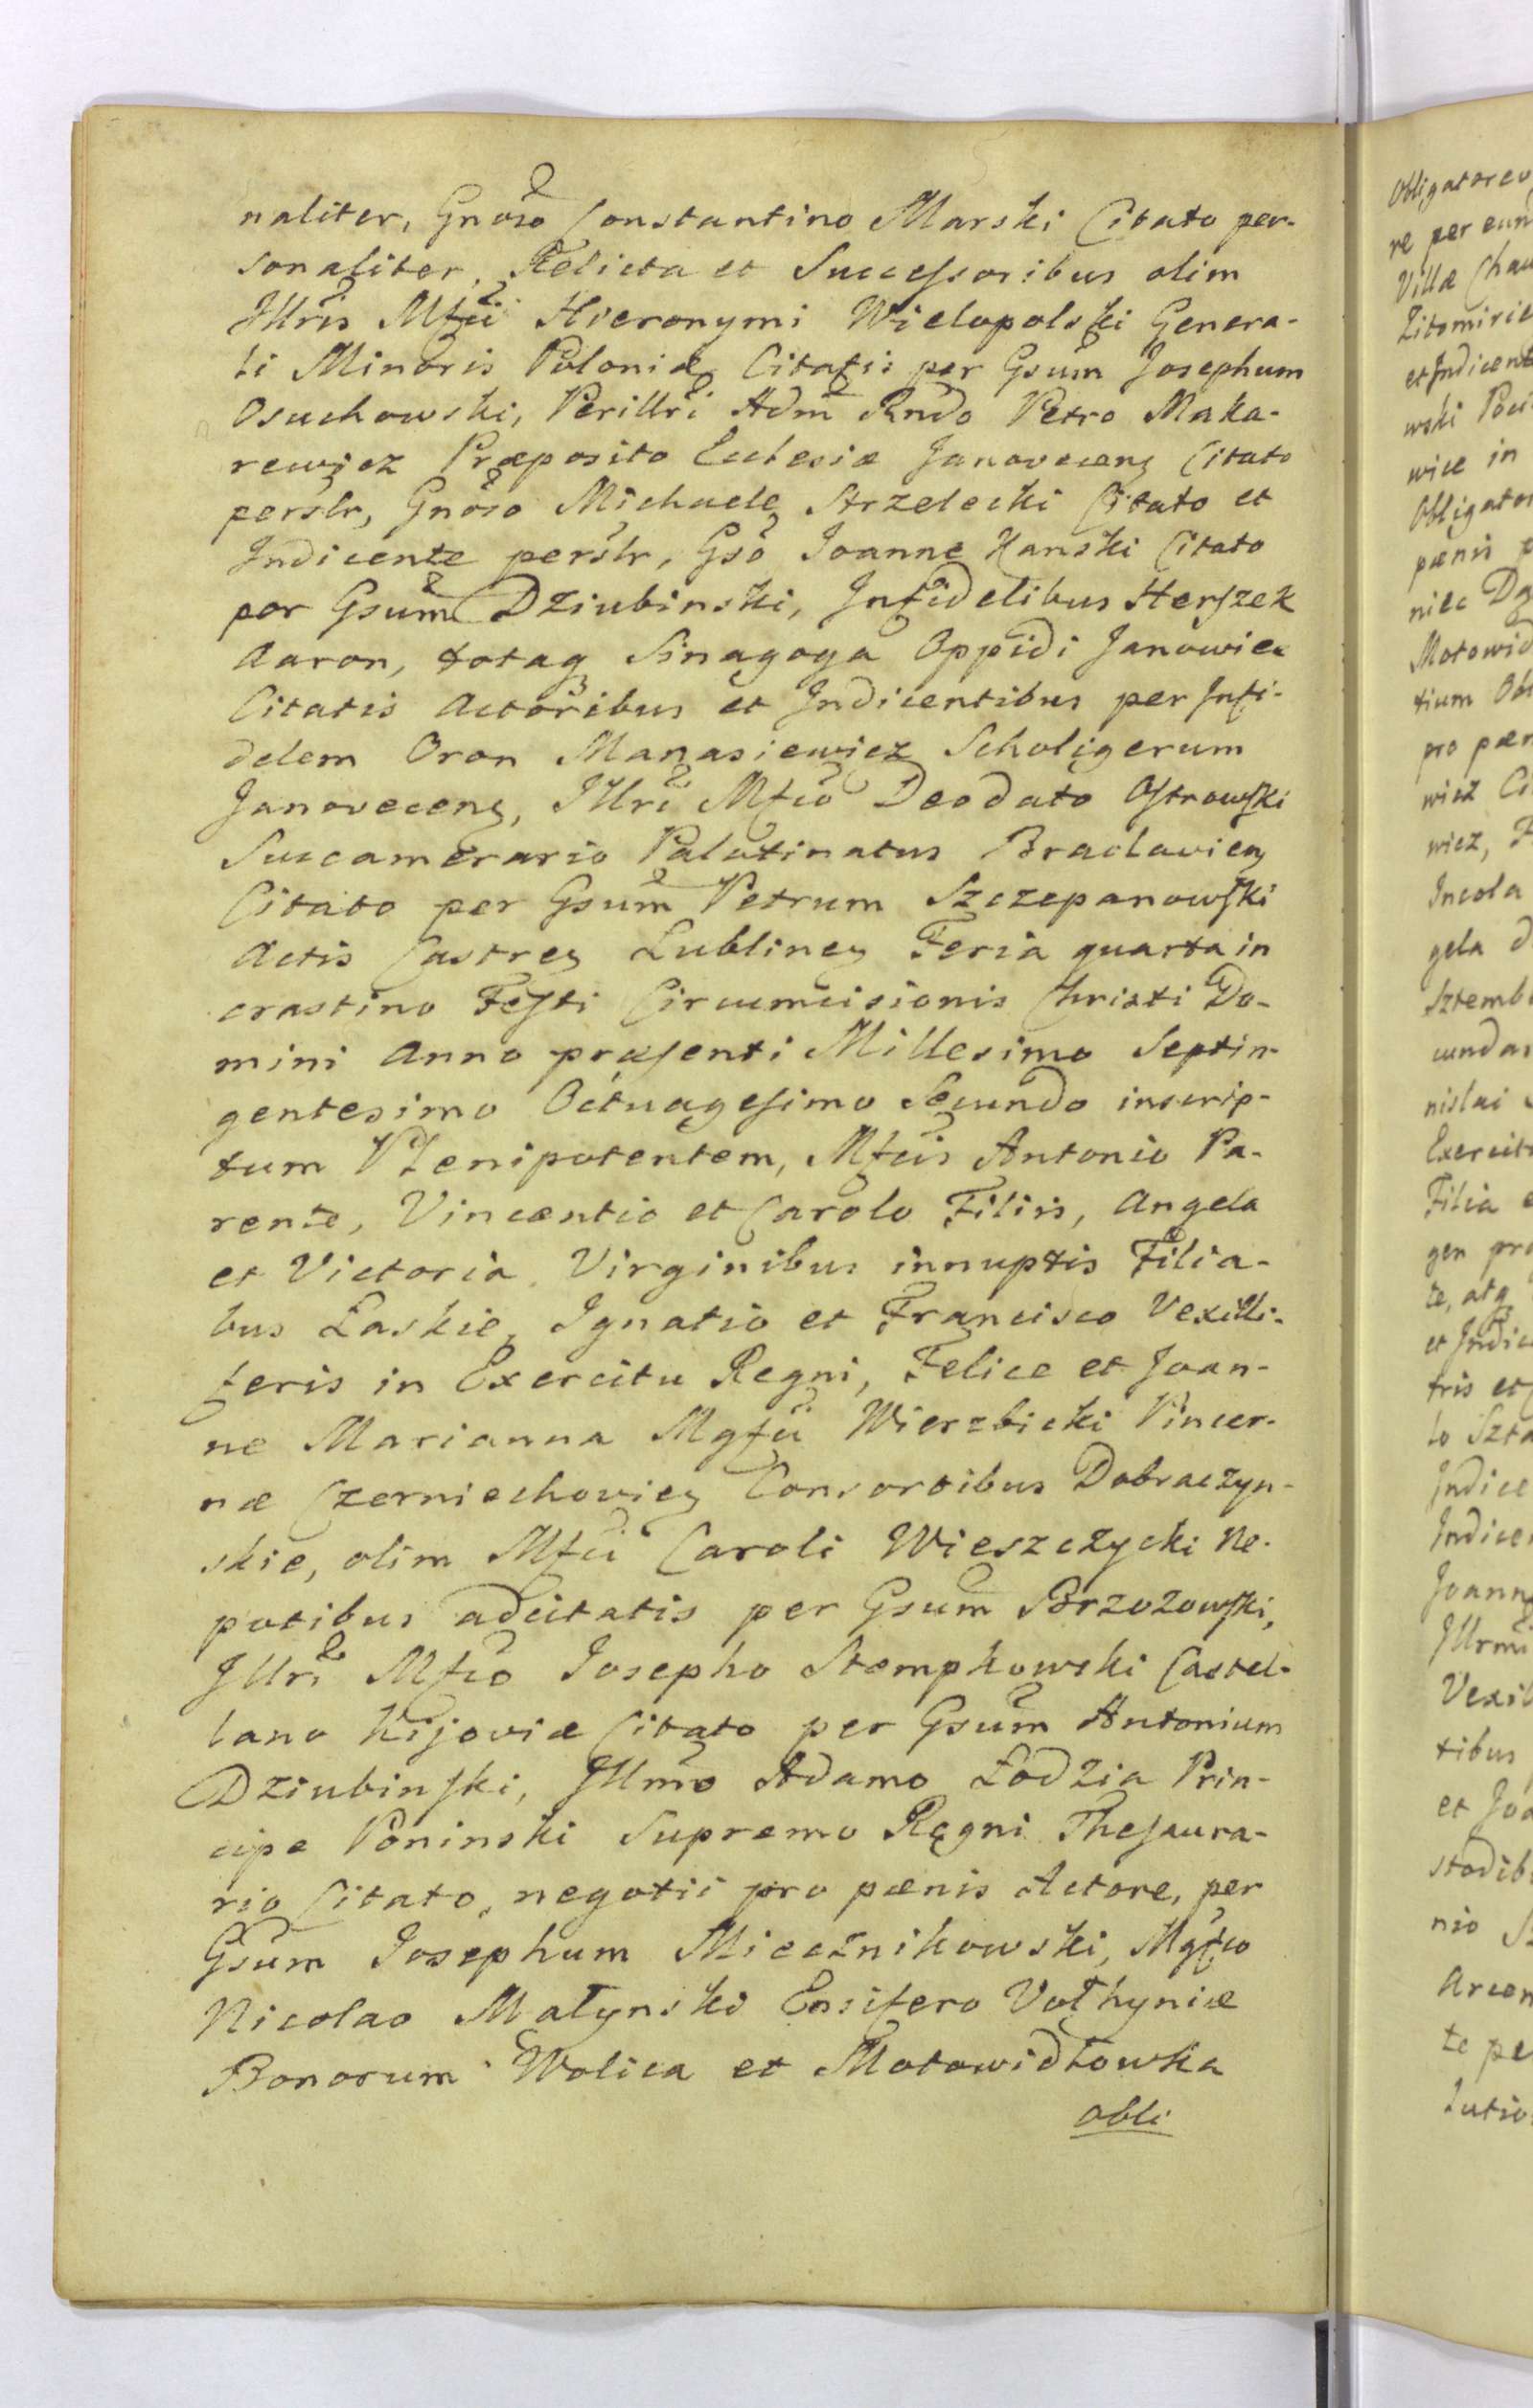 naliter, Gnoso Constantino Marski Citato per-
sonaliter, Relicta et Successoribus olim
Illris Mfci Hieronymi Wielopolski Genera-
li Minoris Poloniæ Citatis per Gsum Josephum
Osuchowski, Perillri Adm Rndo Petro Maka-
rewicz Præposito Ecclesiæ Janovecens Citato
perslr, Gnoso Michaele Strzelecki Citato et
Indicente perslr, Gso Joanne Kanski Citato
per Gsum Dziubinski, Infidelibus Herszek
Aaron, totaq Sinagoga Oppidi Janowiec
Citatis Actoribus et Indicentibus per Infi-
delem Oron Manasiewicz Scholigerum
Janovecens, Illri Mfco Deodato Ostrowski
Succamerario Palatinatus Braclavien
Citato per Gsum Petrum Szczepanowski
Actis Castren Lublinen Feria quarta in
crastino Festi Circumcisionis Christi Do-
mini Anno præsenti Millesimo Septin-
gentesimo Octuagesimo Secundo inscrip-
tum Plenipotentem, Mfcis Antonio Pa-
rente, Vincentio et Carolo Filiis, Angela
et Victoria Virginibus innuptis Filia-
bus Łaskie, Ignatio et Francisco Vexilli-
feris in Exercitu Regni, Felice et Joan-
ne Marianna Mgfci Wierzbicki Pincer-
næ Czerniechovien Consortibus Dobraczyn-
skie, olim Mfci Caroli Wieszczycki Ne-
potibus adcitatis per Gsum Borzozowski,
Illri Mfco Josepho Stempkowski Castel-
lano Kijoviæ Citato per Gsum Antonium
Dziubinski, Illmo Adamo Łodzia Prin-
cipe Poninski Supremo Regni Thesaura-
rio Citato, negotii pro pœnis Actore, per
Gsum Josephum Miecznikowski, Mgfco
Nicolao Małynski Ensifero Vołhyniæ
Bonorum Wolica et Motowidłowka
obli
Obligatoreo
re per eund
Villæ Chau
Zitomirie
et Indicent
wski
wice in
Obligator
pænis p
niec
Motowid
tium Ob
pro pæn
wicz Ci
wicz,
Incola
gela d
Sztemb
cundar
nislai
Exercit
Filia e
gen pro
te, atq
et Indic
tris et
lo Szta
Indice
Indice
Joann
Illrmi
Vexil
tibus
et Joa
stodib
nio
Arcen
te pe
lutio